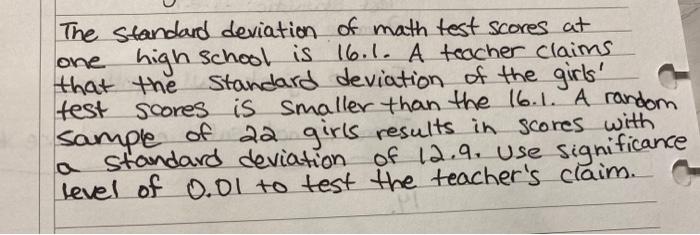 The standard deviation of math test scores at
one high school is 16.1. A teacher claims
that the standard deviation of the girls'
test scores is smaller than the 16.1. A random
sample of 22 girls results in scores with
a standard deviation of 12.9. Use significance
level of 0.01 to test the teacher's claim.